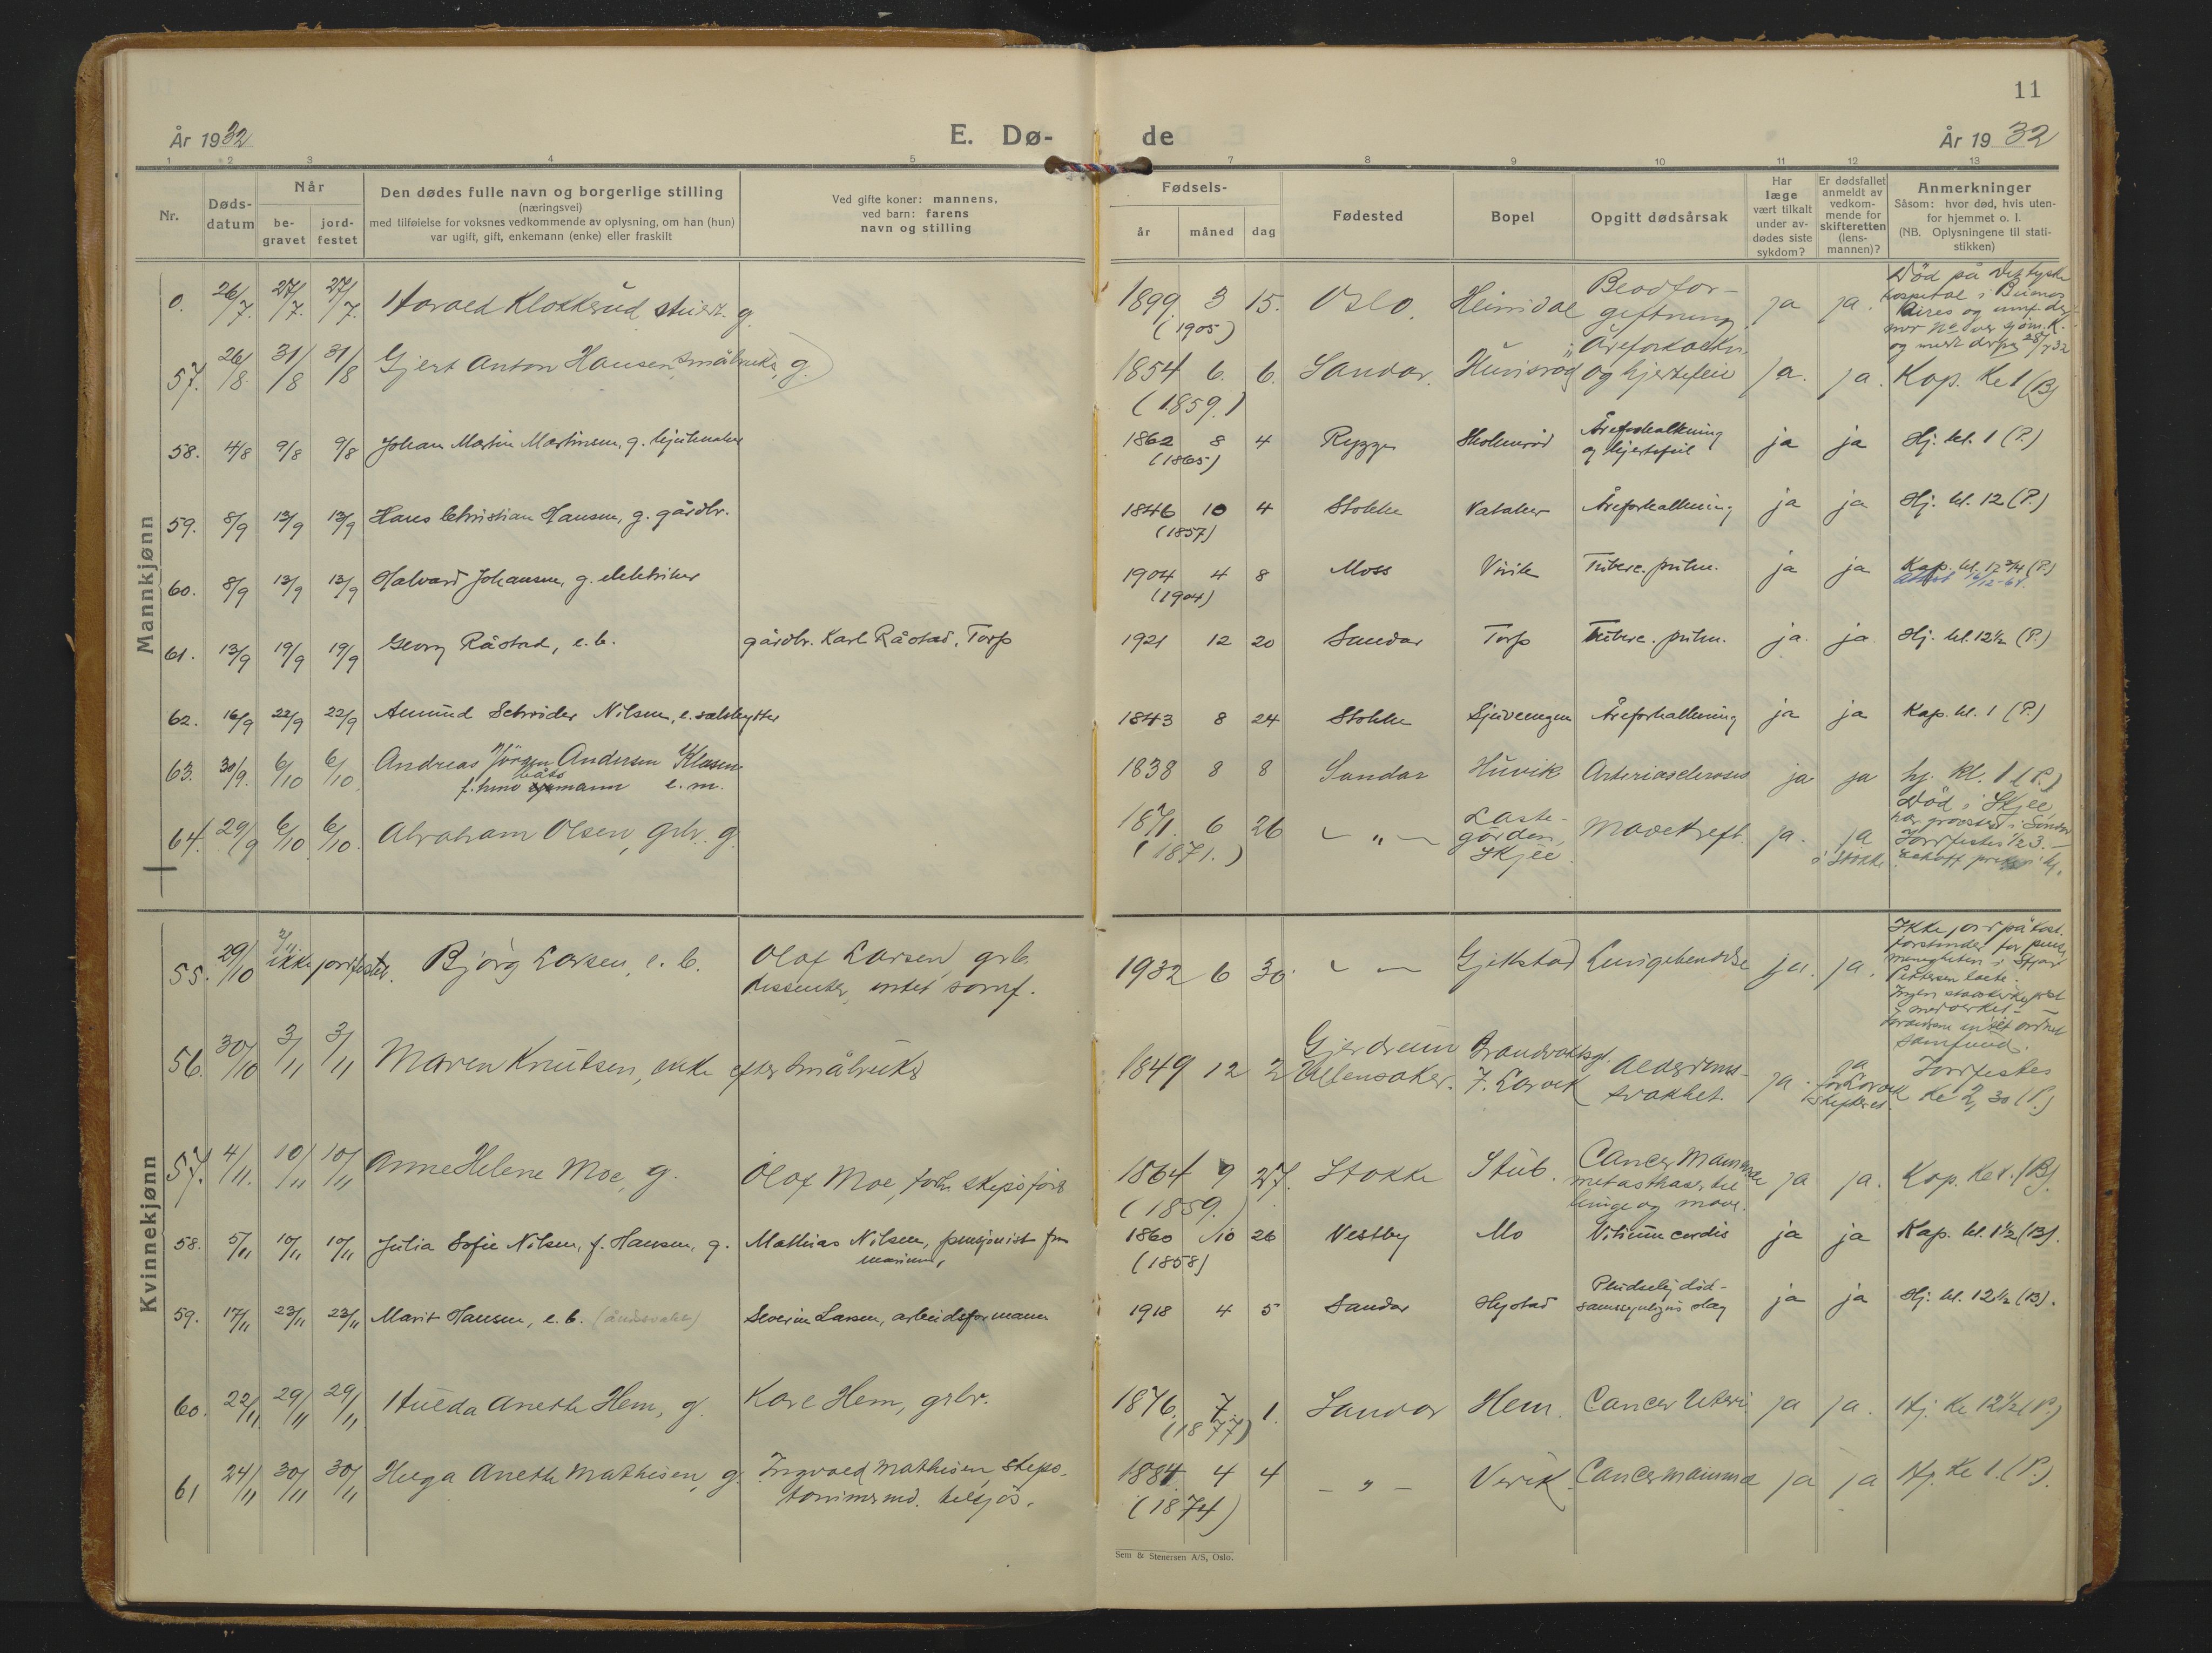 11
År 1932 E. Dø- de År 1932
1 2 3 4 5 7 8 9 10 11 12 13
Nr.
Døds-
datum
Når
be-
gravet
jord-
festet
Den dødes fulle navn og borgerlige stilling
(næringsvei)
med tilføielse for voksnes vedkommende av oplysning, om han (hun)
var ugift, gift, enkemann (enke) eller fraskilt
Ved gifte koner: mannens,
ved barn: farens
navn og stilling
Fødsels-
år måned dag
Fødested
Bopel
Opgitt dødsårsak
Har
læge
vært tilkalt
under av-
dødes siste
sykdom?
Er dødsfallet
anmeldt av
vedkom-
mende for
skifteretten
(lens-
mannen)?
Anmerkninger
Såsom: hvor død, hvis uten-
for hjemmet o. l.
(NB. Oplysningene til stati-
stikken)
Mannkjønn
0. 26/7. 27/7. 27/7. Harald Klokkerud g. 1899. 3 15. Oslo. Heimdal Blodfor-
giftning ja ja. Død på Det tyske
hospital i Buenos
Aires
(1905)
57. 26/8. 31/8 31/8 Gjert Anton Hansen småbruks, g. 1854 6. 6. Sandar. Åreforkalkn.
og hjertefeil ja. ja. Kap. kl 1 (B)
(1859.)
58. 4/8 9/8 9/8 Johan Martin Martinsen, g. 1862 8 4 Rygge Åreforkalkning
og hjertefeil ja ja Hj. kl. 1 (P.)
(1865)
59. 8/9 13/9 13/9 Hans Christian Hansen, g. gårdbr. 1846 10 4 Stokke Vataker Åreforkalkning ja ja Hj. kl. 12 (P.)
(1857)
60. 8/9 13/9 13/9 Halvard Johansen, g. elektriker 1904 4 8 Moss Virik Tuberc. pulm. ja ja Kap. kl. 12 3/4 (P.)
(1904)
61. 13/9 19/9 19/9 Georg Råstad, e. b. gårdbr. Karl Råstad, Torp 1921 12 20 Sandar Torp Tuberc. pulm. ja ja Hj. kl. 12½ (P.)
62. 16/9 22/9 22/9 Amund Schrøder Nilsen, e. selskytter 1843 8 24 Stokke Åreforkalkning ja ja Kap. kl. 1 (P.)
63. 30/9. 6/10 6/10. Andreas Jörgen Andersen Klasen
båts
mann e. m. 1838 8 8 Sandar Huvik Arteriosclerosis ja ja hj. kl. 1 (P.)
64. 29/9 6/10 6/10. Abraham Olsen, grbr. g. 1871. 6 26 - „ - Laste-
gården,
Skjee. Mavekreft. ja. ja
i Stokke Død i Skjee
(1871.)
Kvinnekjønn
55. 29/10 ikke jordfestet. Bjørg Larsen, e. b. Olaf Larsen, grb.
dissenter, intet samf. 1932 6 30. - „ - Gjekstad Lungebetendelse ja. ja.
Ingen statskirkeprest
samfund.
56. 30/10 3/11 3/11 Maren Knutsen, enke efter småbruks 1849 12 2 Gjerdrum
Ullensaker. Brandvaktsgt.
7. Larvik Alderdoms-
svakhet. ja. ja
for Larvik
skifteret. Jordfestes
kl 2,30 (P.)
57. 4/11. 10/11 10/11 Anne Helene Moe, g. Olaf Moe, forh. skipsförer 1864 9 27. Stokke Stub. Cancer Mammae
metasthaser til
lunge og mave. ja ja. Kap. kl 1. (B).
(1859.)
58. 5/11 10/11 10/11 Julia Sofie Nilsen, f. Hansen, g. Mathias Nilsen, pensjonist fra
marinen, 1860 10 26 Vestby Mo Vitium cordis ja ja Kap. kl. 1½ (B).
(1858)
59. 17/11 23/11 23/11 Marit Hansen, e. b. (åndssvak) Severin Larsen, arbeidsformann 1918 4 5 Sandar Hystad Pludselig død-
sannsynligvis slag ja ja Hj. kl. 12½ (B).
60. 22/11 29/11 29/11 Hulda Anette Hem, g. Karl Hem, grbr. 1876. 7. 1. Sandar Hem. Cancer Uteri ja ja. Hj. kl 12½ (P.)
(1877)
61 24/11 30/11 30/11 Helga Anette Mathisen, g. Ingvald Mathisen, skips-
tømmermd. tilsjøs. 1884 4 4 - „ - Verik Cancer mamma ja ja Hj. kl 1. (P.).
(1874)
Sem & Stenersen A/S, Oslo.